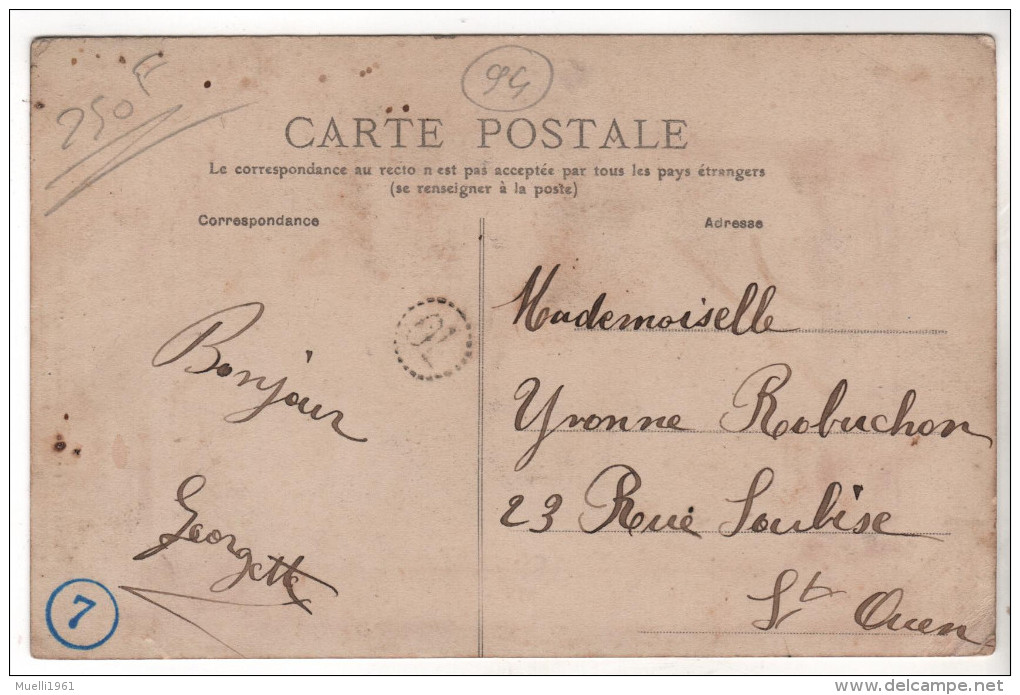 250F
94
CARTE POSTALE
Le correspondance au recto n'est pas acceptée par tous les pays étrangers
(se renseigner à la poste)
Correspondance
Adresse
Bonjour
Georgette
OL
Mademoiselle
Yvonne Robuchon
23 Rue Soubise
St Ouen
7
Muelli1961
delcampe.net